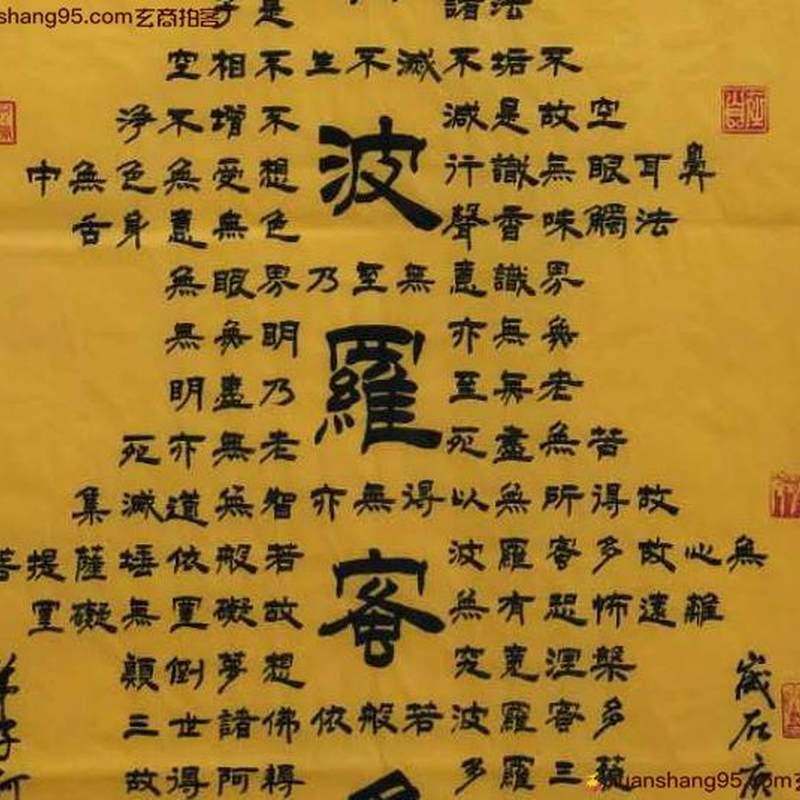 shang95.com玄商拍客
子是 諸法
空相不生不滅不垢不
淨不增不 減是故空
中無色無受想 行識無眼耳鼻
舌身意無色 聲香味觸法
無眼界乃至無意識界
無無明 亦無無
明盡乃 至無老
死亦無老 死盡無苦
集滅道無智亦無得以無所得故
菩提薩埵依般若 波羅蜜多故心無
罣礙無罣礙故 無有恐怖遠離
顛倒夢想 究竟涅槃
三世諸佛依般若波羅蜜多
故得阿耨 多羅三藐
波羅蜜多
歲在庚
弟子
xuanshang95.com玄